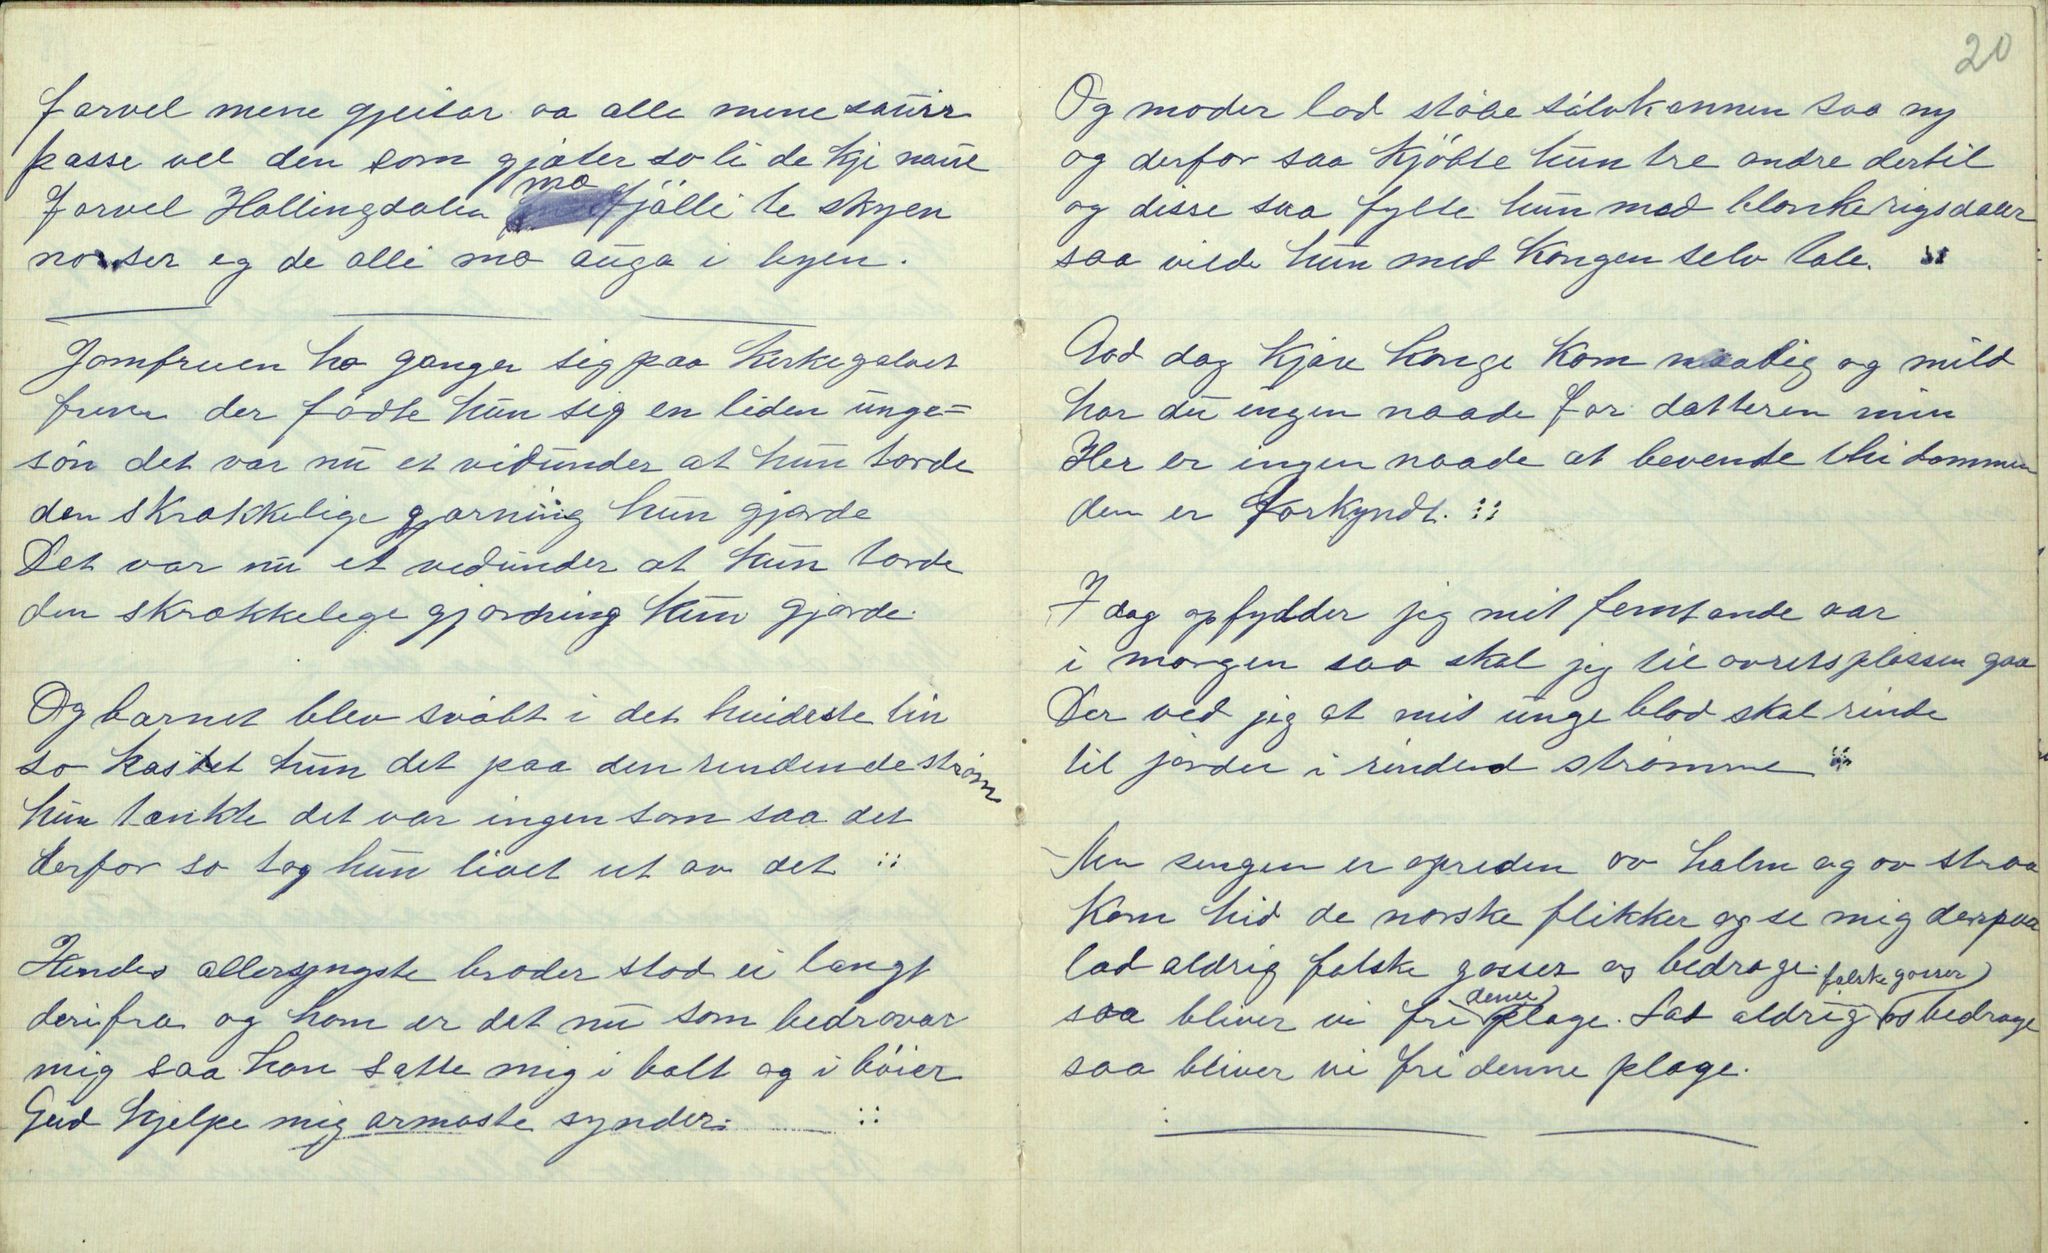 farvel mene gjeitar oa alle mene sauir
passe vel den som gjæter so li de kje naue
Farvel Hallingdalen ma fjölli te skyen
no ser eg de alli ma auga i byen.
Jomfruen ho ganger sig paa kirkegalvet
der födte hun sig en liden unge=
sön det var nu et vidunder at hun torde
den skrækkelige gjærning hun gjorde
Det var nu et vedunder at hun torde
den skrækkelege gjærning hun gjorde.
Og barnet blev svöbt i det hvideste lin
so kastet hun det paa den rendende ström
hun tænkte det var ingen som saa det
derfor so tog hun livet ut av det :::
Hendes allersyngste broder stod ei langt
derifra og ham er det nu som bedrøvar
mig saa han satte mig i bolt og i böier
Gud hjelpe mig armaste synder. ::
20
Og moder lod stöbe sölvkannen saa ny
og derfor saa kjöbte hun tre andre dertil
og disse saa fylte hun med blanke rigsdaler
saa vilde hun med kongen selv tale. ::
God dag kjære konge kom naadig og mild
har du ingen naade for datteren min
Her er ingen naade at bevende thi dommen
den er forkyndt. ::
I dag opfydder jeg mit femtande aar
i morgen saa skal jeg til avretsplassen gaa
Der ved jeg at mit unge blod skal rinde
til jorden i rindend strømme ::
Men sengen er opreden av halm og av straa
Kom hid de norske flikker og se mig derpaa
lad aldrig falske gosser os bedrage. falske gosser
saa bliver vi fri denne plage. Lad aldrig os bedrage
saa bliver vi fri denne plage.